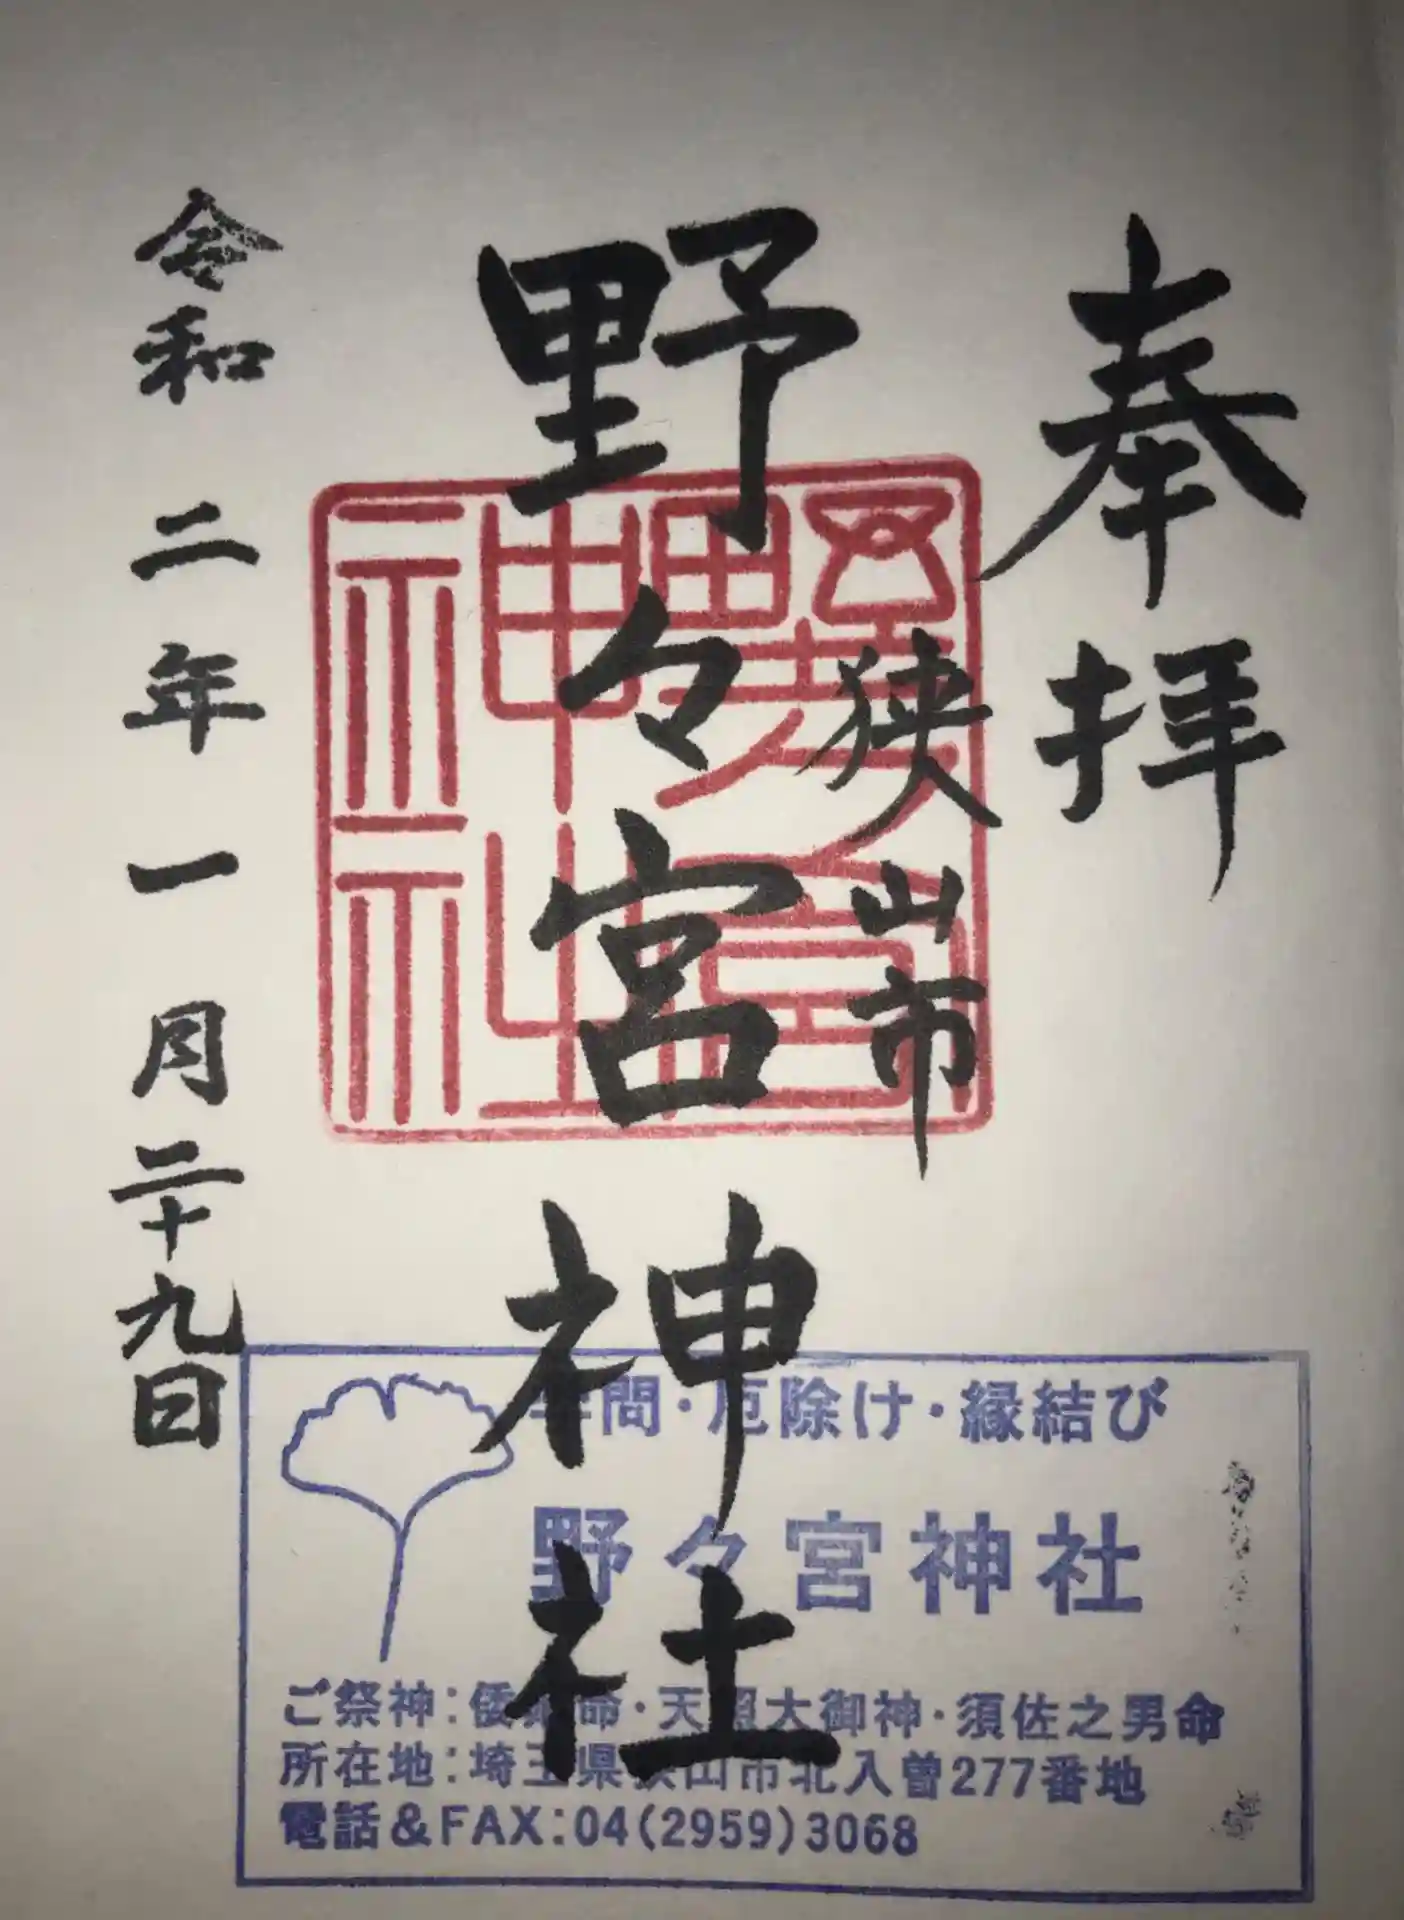 奉拝
狭山市
野々宮神社
野々宮
神社
令和二年一月二十九日
学問・厄除け・縁結び
野々宮神社
ご祭神：倭姫命・天照大御神・須佐之男命
所在地：埼玉県狭山市北入曽277番地
電話&FAX：04(2959)3068